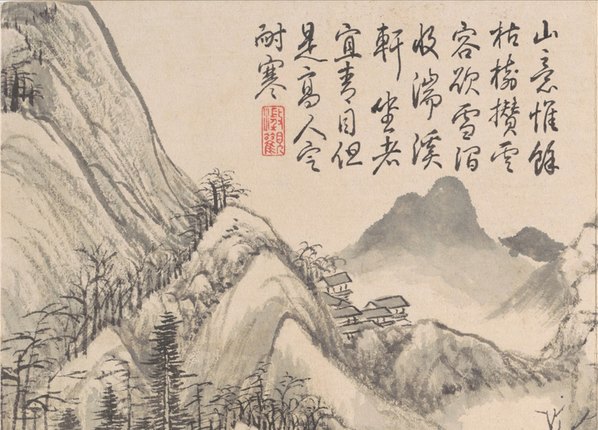 山意惟餘
枯樹攢雲
容欲雪溜
收湍溪
軒坐者
宜青目但
是高人定
耐寒